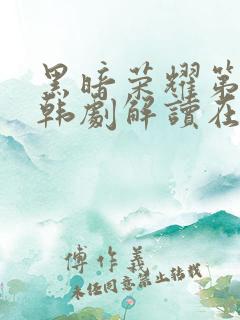 黑暗荣耀第
韩劇解讀在
傅作義
未经同意禁止转载